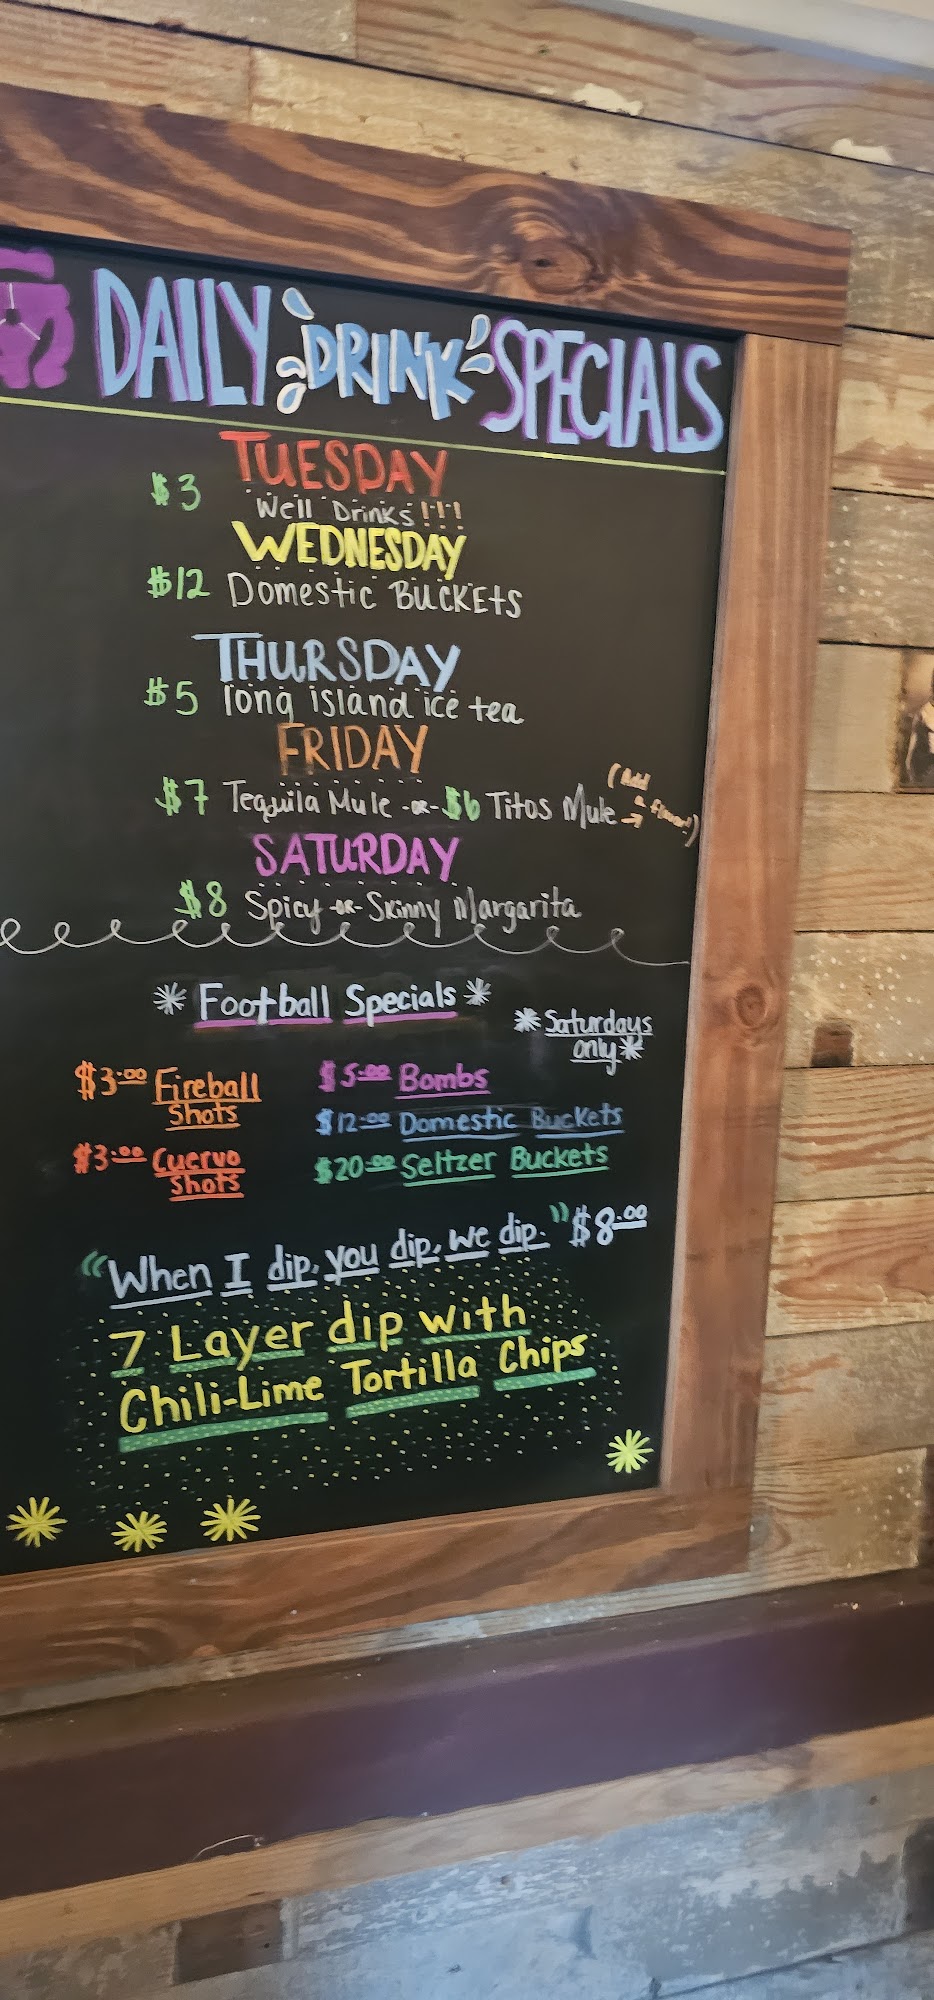 DAILY DRINK SPECIALS
TUESDAY
$3 Well Drinks!!!
WEDNESDAY
$12 Domestic BUCKEtS
THURSDAY
$5 long island ice tea
FRIDAY
$7 Tequila Mule -OR- $6 Titos Mule → (Add a flavor!)
SATURDAY
$8 Spicy -OR- Skinny Margarita
* Football Specials *
* Saturdays
only *
$3.00 Fireball
Shots
$5.00 Bombs
$12.00 Domestic Buckets
$3.00 Cuervo
Shots
$20.00 Seltzer Buckets
"When I dip, you dip, we dip." $8.00
7 Layer dip with
Chili-Lime Tortilla Chips